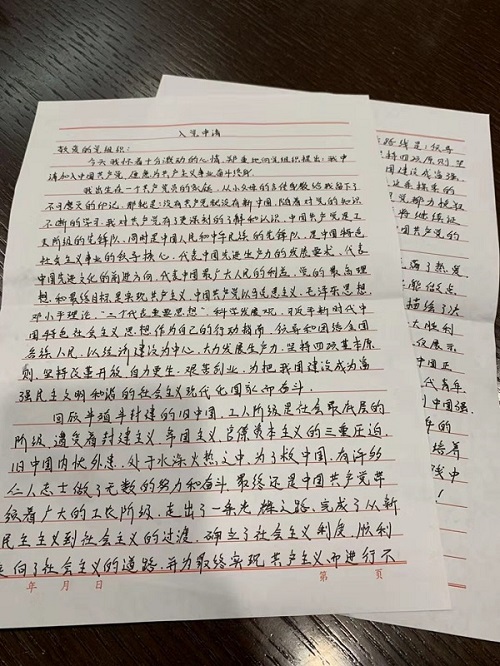 入党申请
敬爱的党组织：
今天我怀着十分激动的心情，郑重地向党组织提出：我申
请加入中国共产党，愿意为共产主义事业奋斗终身。
我出生在一个共产党员的家庭，从小父母的言传身教给我留下了
不可磨灭的印记，那就是：没有共产党就没有新中国。随着对党的知识
不断的学习，我对共产党有了更深刻的了解和认识，中国共产党是工
人阶级的先锋队，同时是中国人民和中华民族的先锋队，是中国特色
社会主义事业的领导核心，代表中国先进生产力的发展要求，代表
中国先进文化的前进方向，代表中国最广大人民的利益。党的最高理
想和最终目标是实现共产主义。中国共产党以马克思主义、毛泽东思想、
邓小平理论、“三个代表重要思想”、科学发展观、习近平新时代中
国特色社会主义思想作为自己的行动指南，领导和团结全国
各族人民，以经济建设为中心，大力发展生产力，坚持四项基本原
则，坚持改革开放，自力更生，艰苦创业，为把我国建设成为富
强民主文明和谐的社会主义现代化国家而奋斗。
回顾半殖半封建的旧中国，工人阶级是社会最底层的
阶级，遭受着封建主义、帝国主义、官僚资本主义的三重压迫，
旧中国内忧外患，处于水深火热之中，为了救中国，有许多
仁人志士做了无数的努力和奋斗，最终还是中国共产党带
领着广大的工农阶级，走出了一条光辉之路，完成了从新
民主主义到社会主义的过渡，确立了社会主义制度，顺利
走向了社会主义的道路，并为最终实现共产主义而进行不
年 月 日 第 页
路线是：领导
坚持四项原则，坚
国建设成富强、
党的
满了热爱
描绘了
大胜利
展示
中国正
代青年
到中国强
年的
培养
践中
！